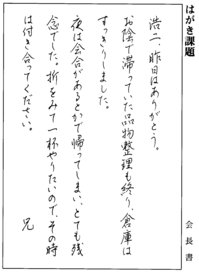 はがき課題
浩二、昨日はありがとう。
お陰で滞っていた品物整理も終り、倉庫は
すっきりしました。
夜は会合があるとかで帰ってしまい、とても残
念でした。折をみて一杯やりたいので、その時
は付き合ってください。
兄
会長書